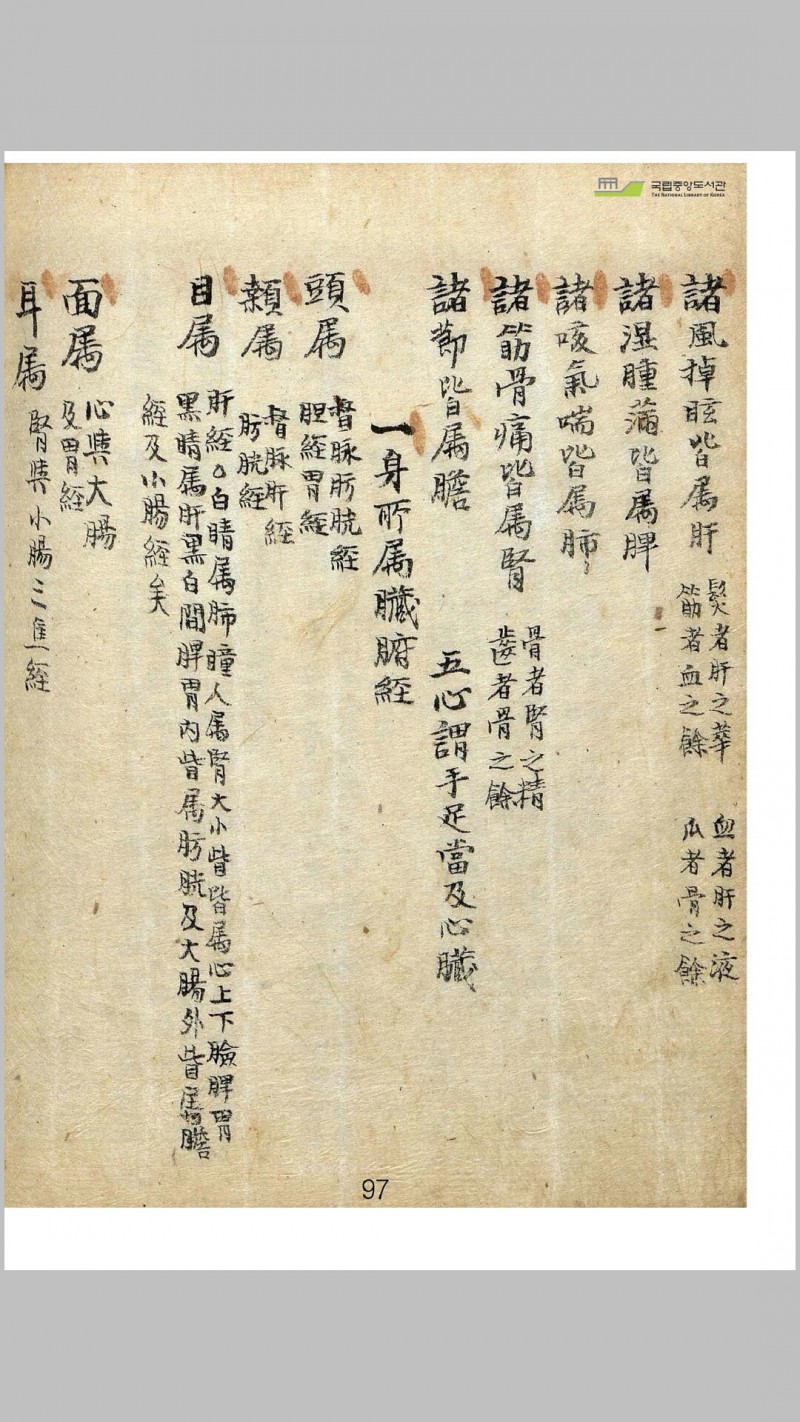 국립중앙도서관
THE NATIONAL LIBRARY OF KOREA
諸風掉眩皆属肝
髮者肝之華
筋者血之餘
血者肝之液
爪者骨之餘
諸湿腫滿皆属脾
諸咳氣喘皆属肺
諸筋骨痛皆属腎
骨者腎之精
齒者骨之餘
諸節皆属膽
五心謂手足當及心臟
一身所属臟腑経
頭属
督脉肪胱経
胆経胃経
頬属
督脉肝経
肪胱経
目属
肝経○白睛属肺瞳人属腎大小眥皆属心上下臉脾胃
黑睛属肝黑白間脾胃內眥属肪胱及大腸外眥属膽
経及小腸経矣
面属
心與大腸
及胃経
耳属
腎與小腸三焦経
97